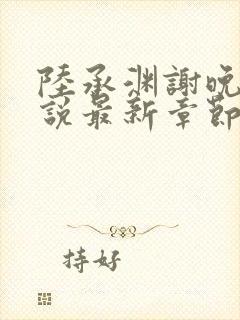 陸承淵謝晚
說最新章節
持好